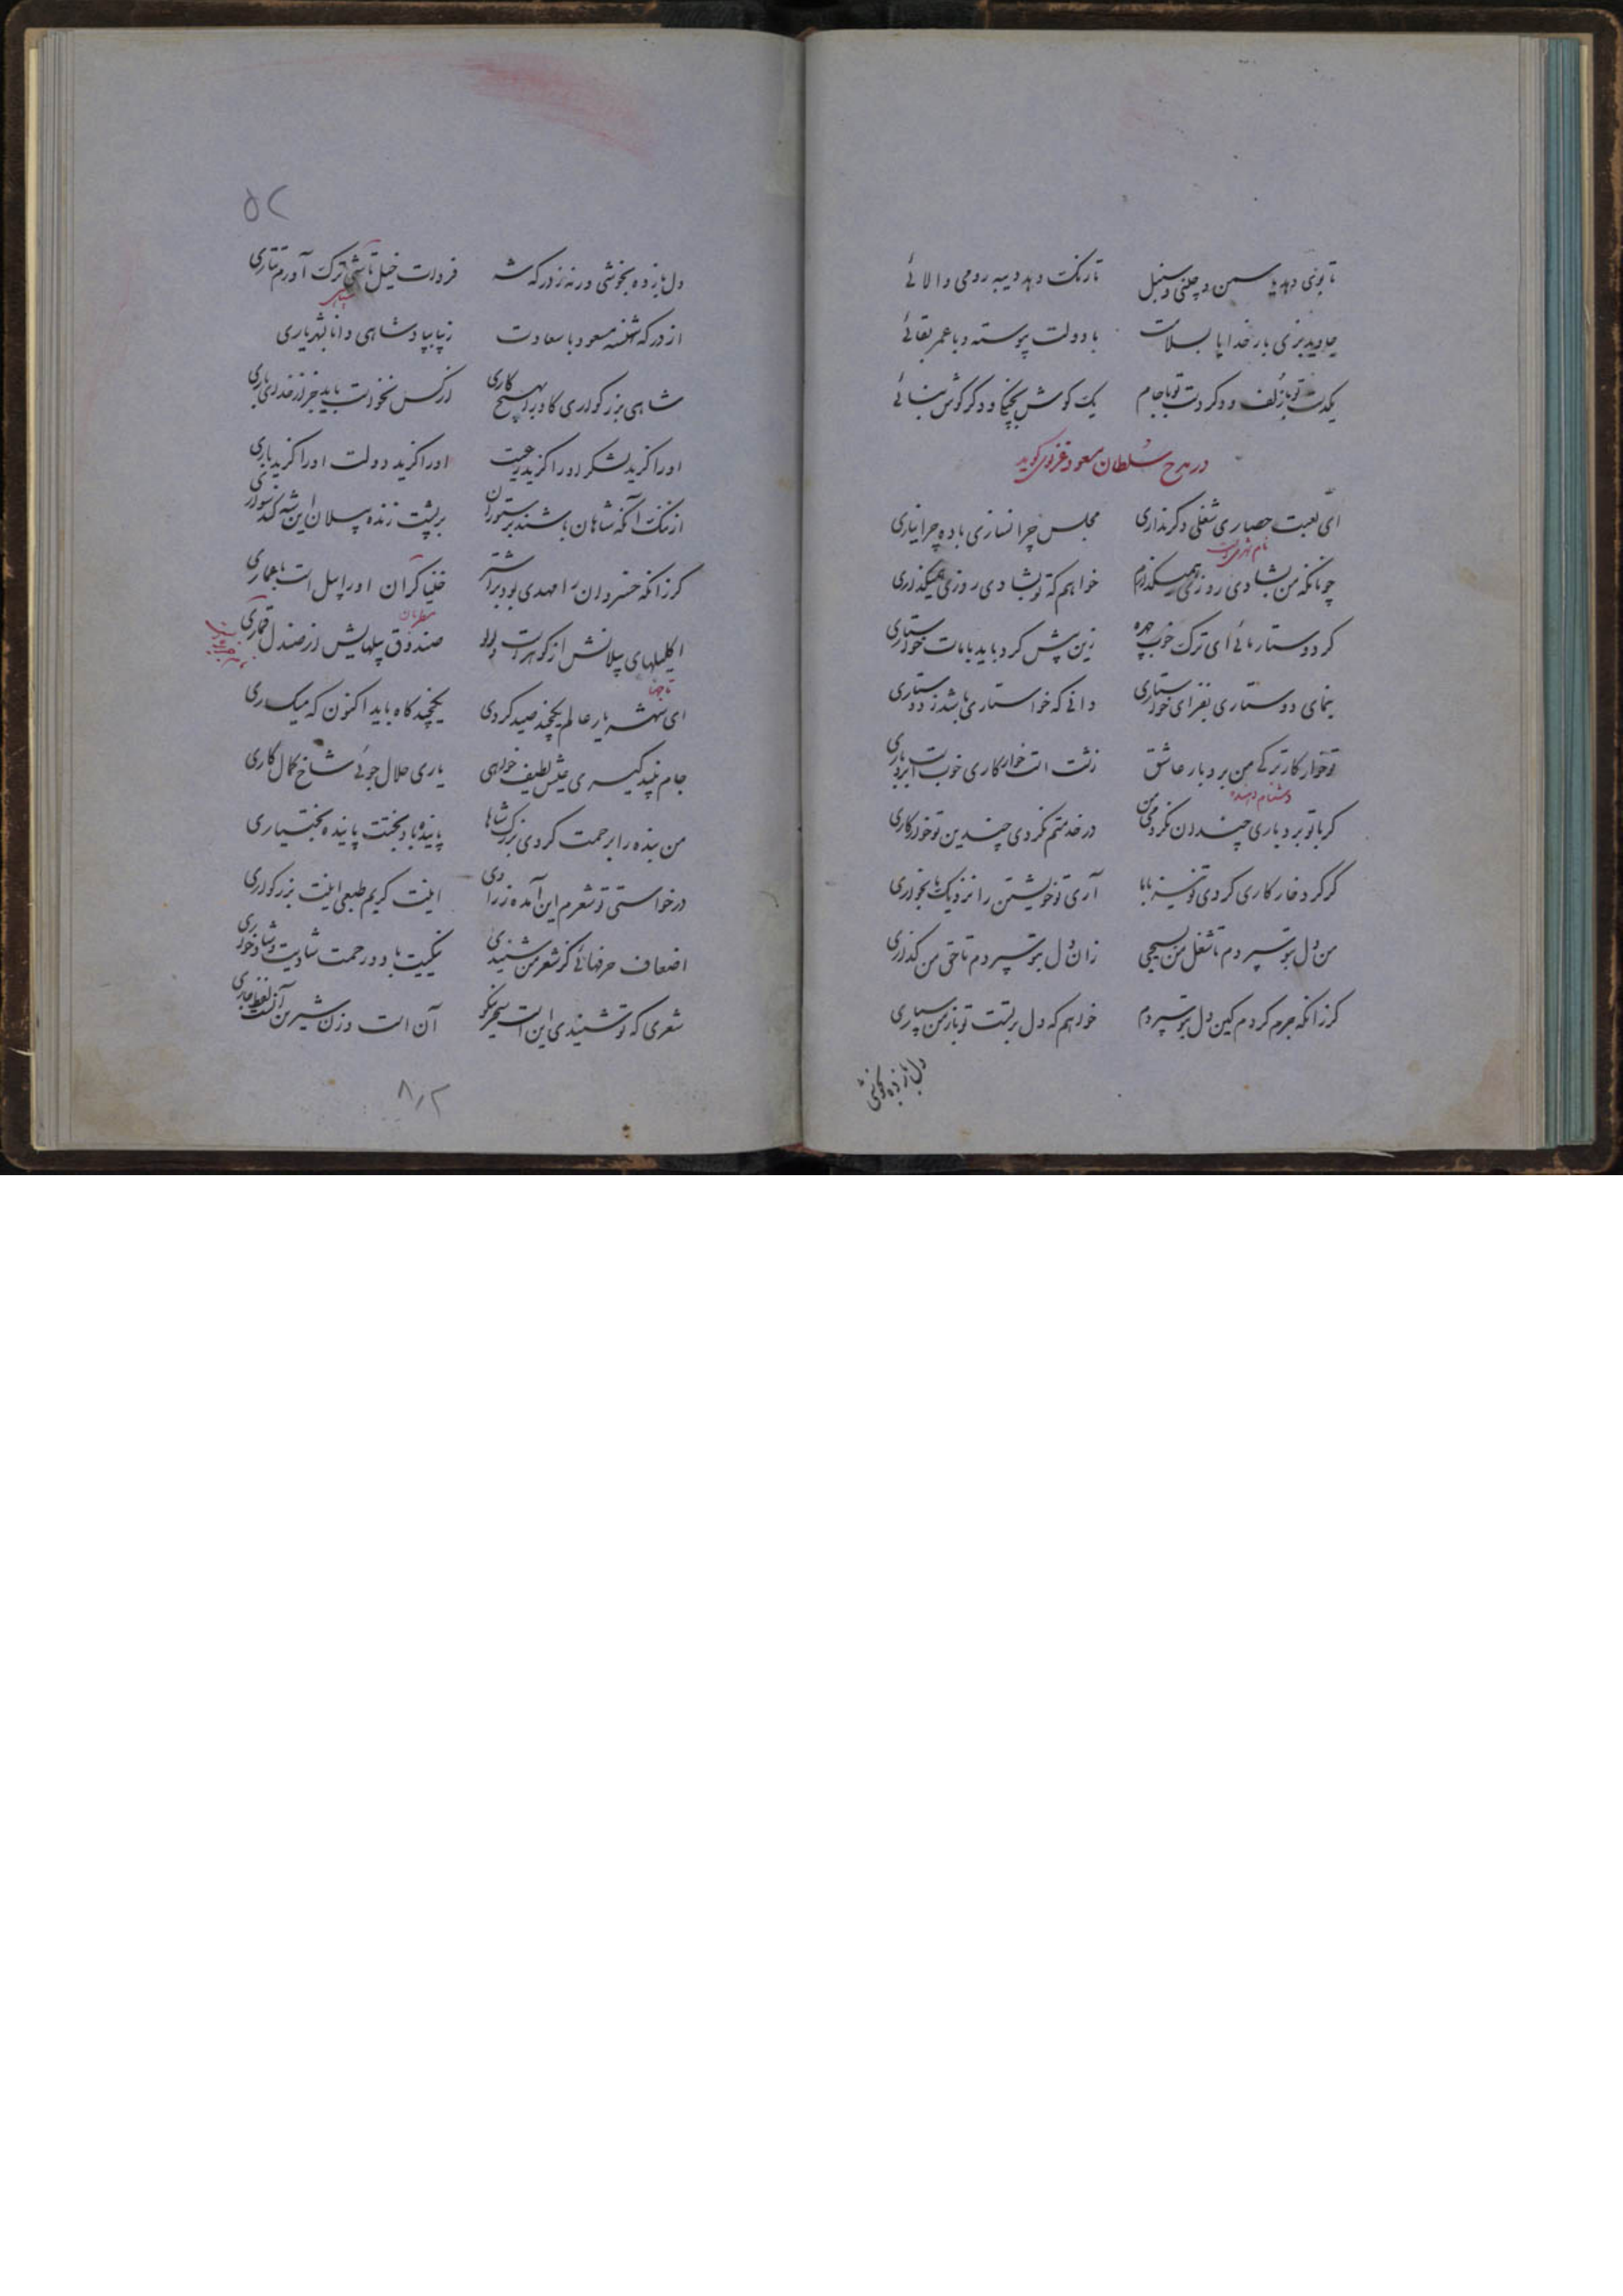 تا بوی دهد یاسمن و چینی و سنبل تا رنگ دهد دیبه رومی و الائی
جاوید بزی بار خدایا بسلامت با دولت پیوسته و با عمر بقائی
یکدست تو با زلف و دگر دست تو با جام یک گوش بچنگی و دگر گوش بنائی
در مدح سلطان مسعود غزنوی گوید
ای لعبت حصاری شغلی دگر نداری مجلس چرا نسازی باده چرا نیاری
نام شهریست
چونانکه من بشادی روزی همیگذارم خواهم که تو بشادی روزی همیگذاری
گر دوستار مائی ای ترک خوب چهره زین پیش کرد باید با مات خواستاری
بنمای دوستاری بفزای خواستاری دانی که خواستاری باشد ز دوستاری
تو خوار کار ترکی من بردبار عاشق زشت است خوار کاری خوب است بردباری
دشنام دهنده
گر با تو بردباری چندان نکردمی من در خدمتم نکردی چندین تو خوارکاری
گر کرد خار کاری کردی تو نیز با ما آری تو خویشتن را نزدیک ما بخواری
من دل بتو سپردم تا شغل من بسیجی زان دل بتو سپردم تا حق من گذاری
گر زانکه جرم کردم کین دل بتو سپردم خواهم که دل برتست تو باز من سپاری
دل باز ده بخوشی
۵۲
دل باز ده بخوشی ورنه ز درگه شه فردات خیل تاشی ترک آورم تتاری
سپاهی
از درگه شهنشه مسعود با سعادت زیبا بپادشاهی دانا بشهریاری
شاهی بزرگواری کاو را بهیچ کاری از کس نخواست باید جز از خدای یاری
او را گزید لشکر او را گزید رعیت او را گزید دولت او را گزید باری
از ننگ آنکه شاهان باشند بر ستوران بر پشت زنده پیلان این شه کند سواری
گر زانکه خسروان را مهدی بود بر اشتر خنیاگران او را پیل است با عماری
مطربان
اکلیلهای پیلانش از گوهرست و لولو صندوق پیلهایش از صندل قماری
تاجها
ای شهریار عالم یکچند صید کردی یکچند گاه باید اکنون که می گساری
جام نبید گیری عیش لطیف خواهی یاری حلال جوئی شاخ کمال کاری
من بنده را بر حمت کردی بزرگ شاها پاینده باد بختت پاینده بختیاری
درخواستی تو شعرم این آمده ز رادی اینت کریم طبعی اینت بزرگواری
اضعاف حرفهائی کز شعر من شنیدی نیکیت باد و رحمت شادیت و شادخواری
شعری که تو شنیدی این است سحر نیکو آن است وزن شیرین آنست لفظ جاری